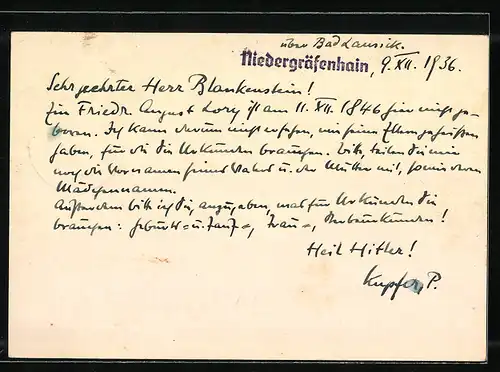 über Bad Lausick.
Niedergräfenhain, 9. XII. 1936.
Sehr geehrter Herr Blankenstein!
Ein Friedr. August Lory ist am 11. XII. 1846 hier nicht ge-
boren. Ich kann darum nicht erfahren, wie seine Eltern geheißen
haben, für die Sie Urkunden brauchen. Bitte, teilen Sie mir
noch die Vornamen seines Vaters u. der Mutter mit, sowie deren
Mädchennamen.
Außerdem bitte ich Sie, anzugeben, was für Urkunden Sie
brauchen: Geburts= u. Tauf=, Trau=, Sterbeurkunden!
Heil Hitler!
Kupfer, P.